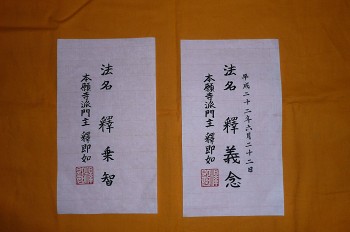 平成二十二年六月二十二日
法名 釋 義念
本願寺派門主 釋即如
法名 釋 乗智
本願寺派門主 釋即如